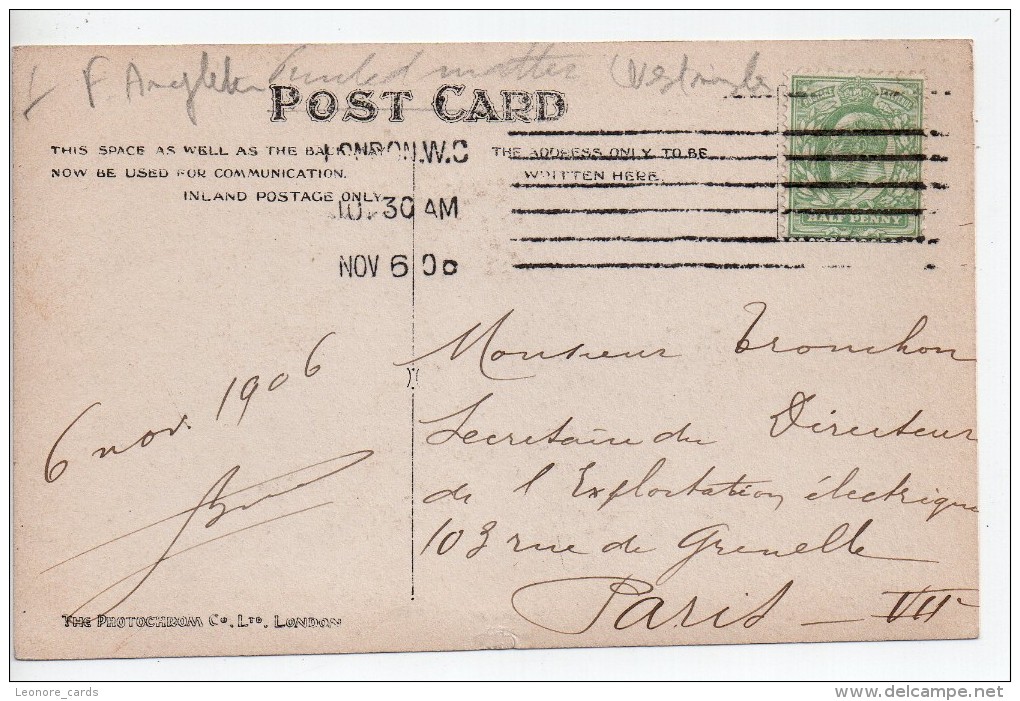 F. Angleterre Printed matter (Westminster
POST CARD
THIS SPACE AS WELL AS THE BACK MAY
NOW BE USED FOR COMMUNICATION.
INLAND POSTAGE ONLY.
THE ADDRESS ONLY TO BE
WRITTEN HERE.
LONDON.W.C
10.30 AM
NOV 6 06
HALF PENNY
6 nov. 1906
Monsieur Tronchon
Secretaire du Directeur
de l'Exploitation électrique
103 rue de Grenelle
Paris - VIIe
THE PHOTOCHROM Co. LTD. LONDON
Leonore_cards
delcampe.net